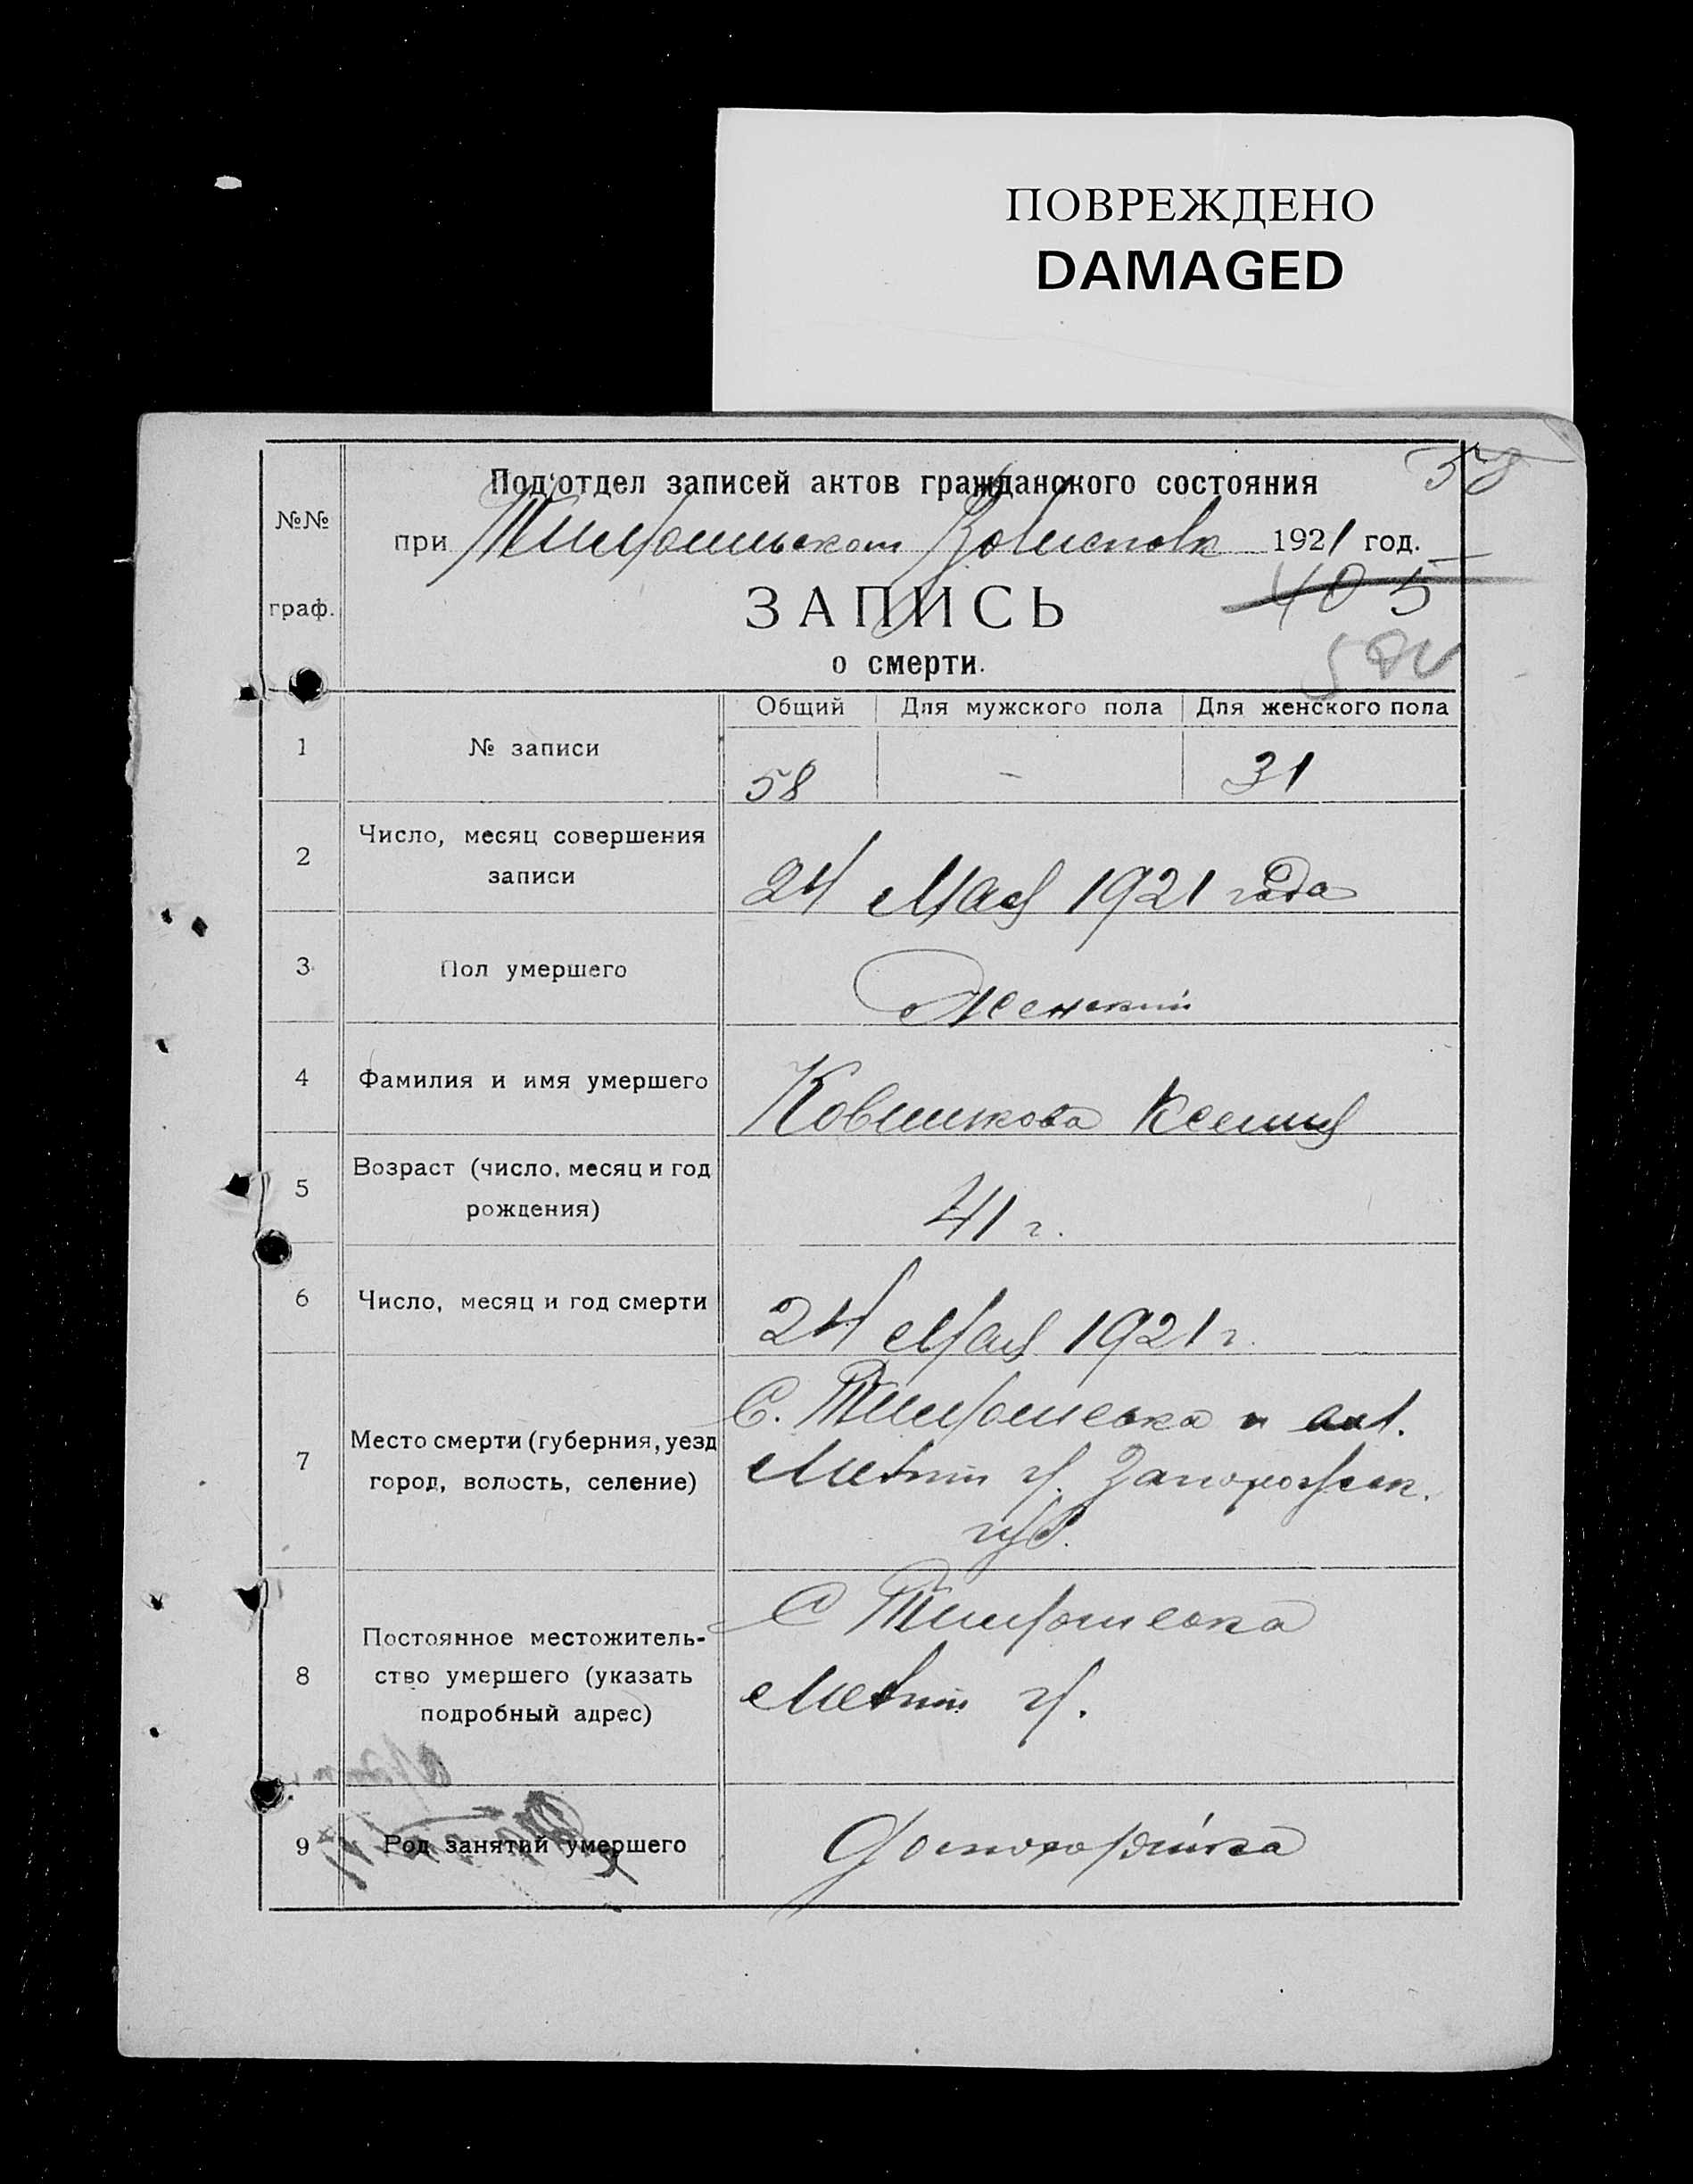 ПОВРЕЖДЕНО
DAMAGED
58
Под'отдел записей актов гражданского состояния
№№
граф.
при Тимошевском Волисполк 1921 год.
405
ЗАПИСЬ
о смерти.
Общий Для мужского пола Для женского пола
1 № записи 58 - 31
2 Число, месяц совершения
записи
24 Мая 1921 года
3 Пол умершего Женский
4 Фамилия и имя умершего Ковшикова Ксения
5 Возраст (число, месяц и год
рождения)
41 г.
6 Число, месяц и год смерти 24 Мая 1921 г.
7 Место смерти (губерния, уезд
город, волость, селение)
С. Тимошевка
Мелит у. Запорожск.
губ.
8 Постоянное местожитель-
ство умершего (указать
подробный адрес)
С Тимошевка
Мелит у.
9 Род занятий умершего